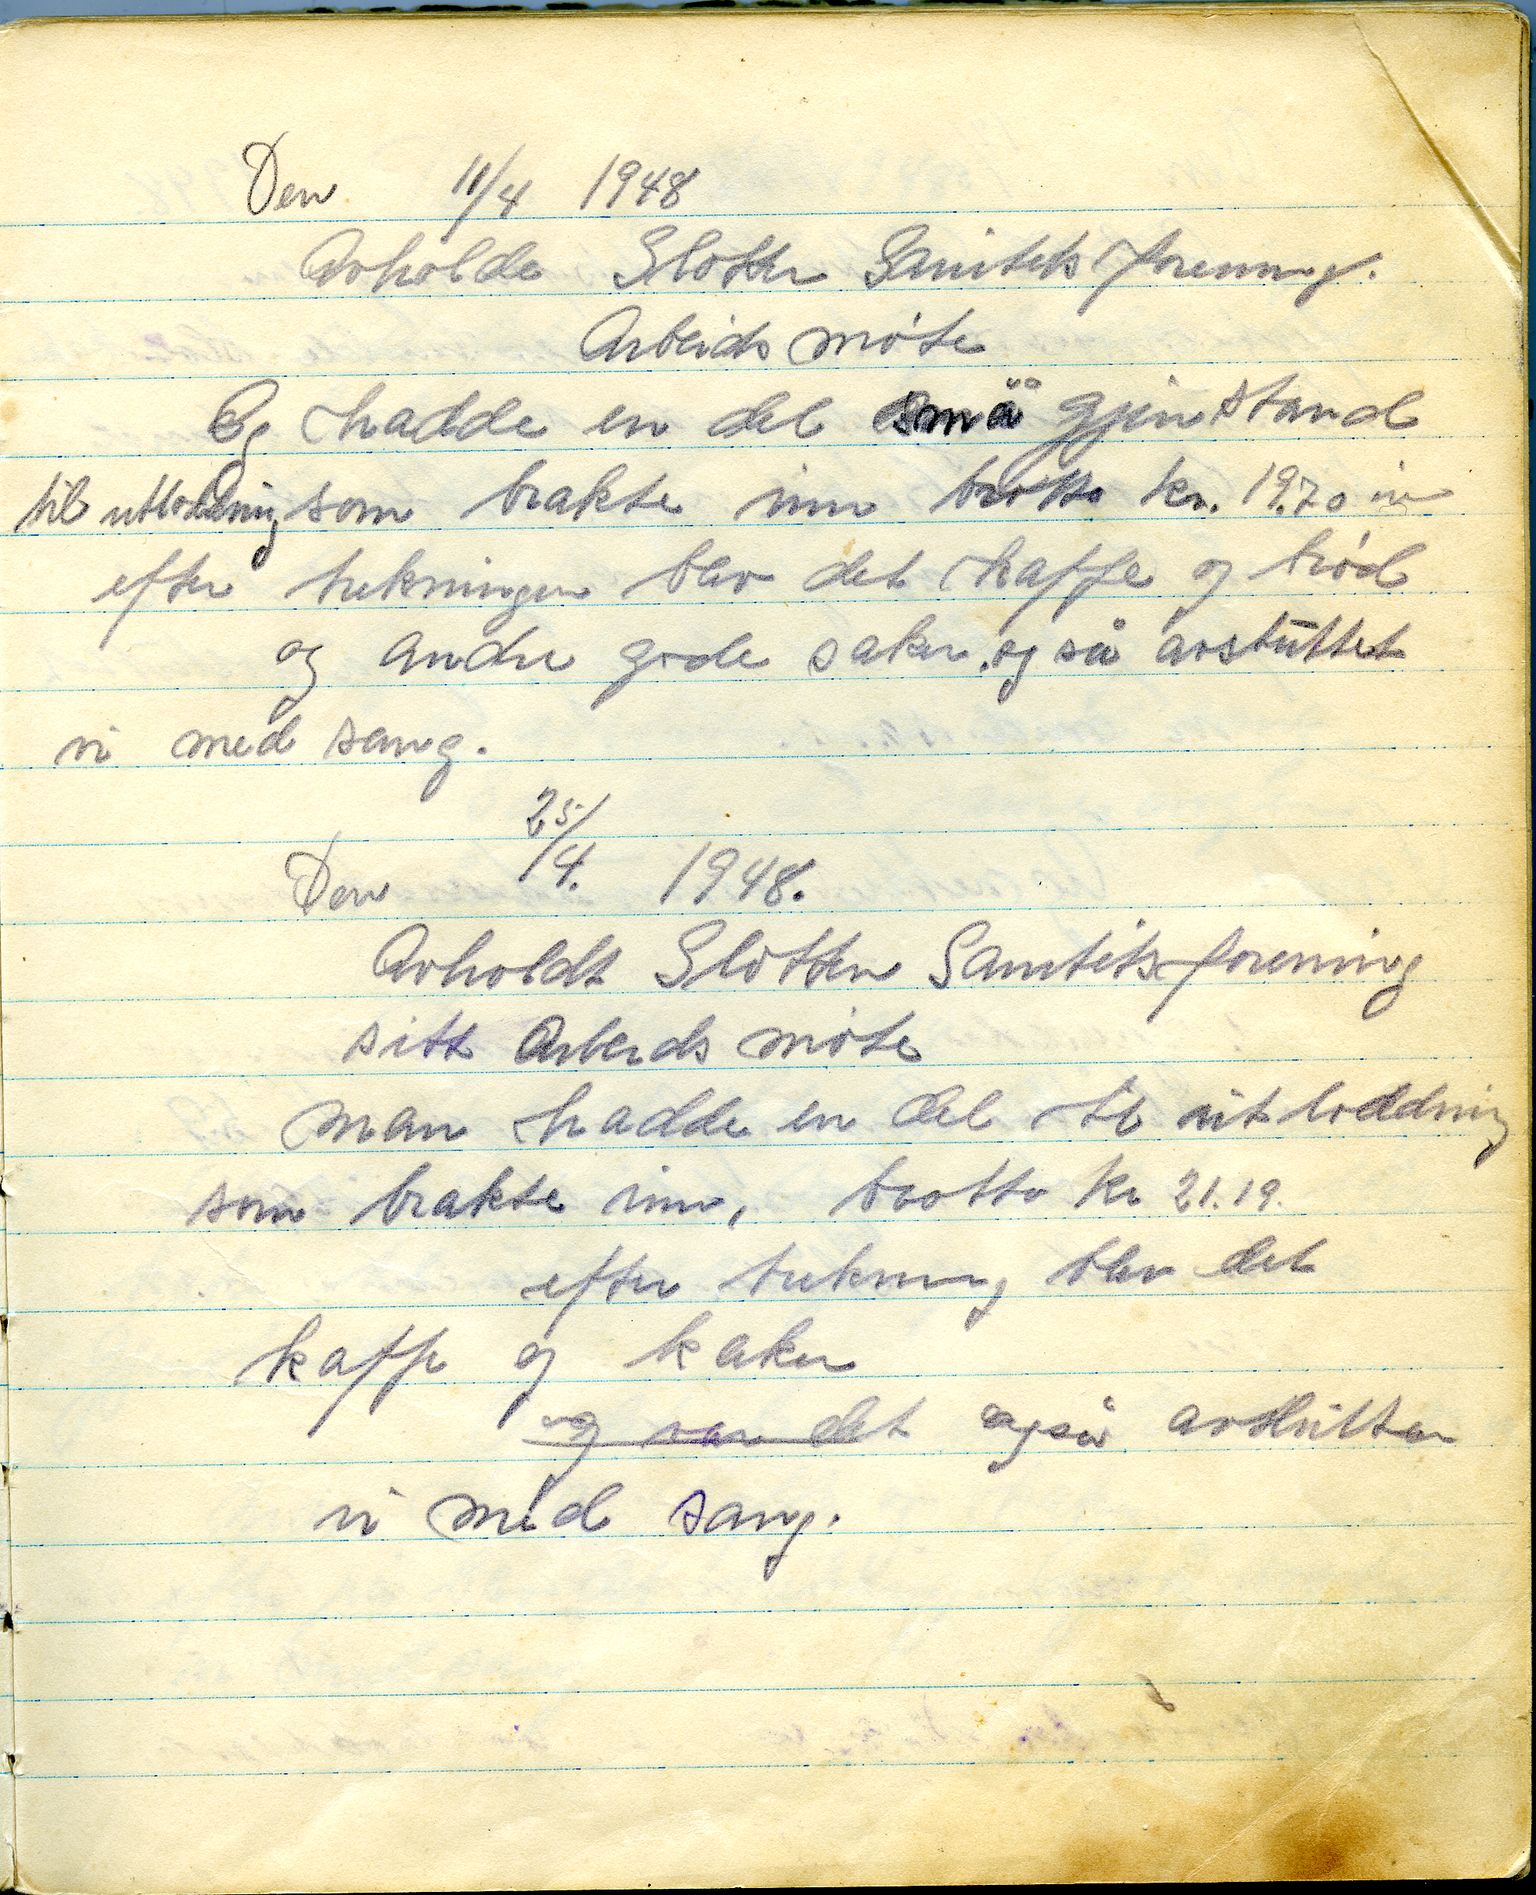 Den 11/4 1948
Avholde Slotten Sanitetsforening.
Arbeids møte
Og hadde en del små gjenstand
til utlodning som brakte inn brotto kr. 19.70
efter trekningen blev det kaffe og brød
og andre gode saker. og så avsluttet
vi med sang.
Den 25/4. 1948.
Avholdt Slotten Sanitetsforening
sitt Arbeids møte
man hadde en del til utloddning
som brakte inn, brotto kr 21.19.
efter trekning blev det
kaffe og kaker
og var det også avslutter
vi med sang.